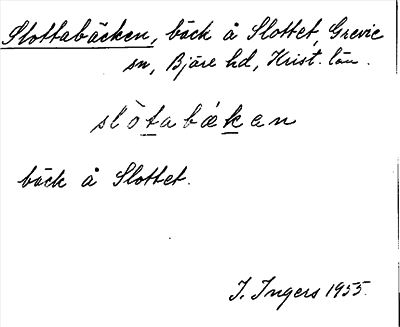 Slottabäcken, bäck å Slottet, Grevie
sn, Bjäre hd, Krist. län.
slòtabæken
bäck å Slottet.
I. Ingers 1955.